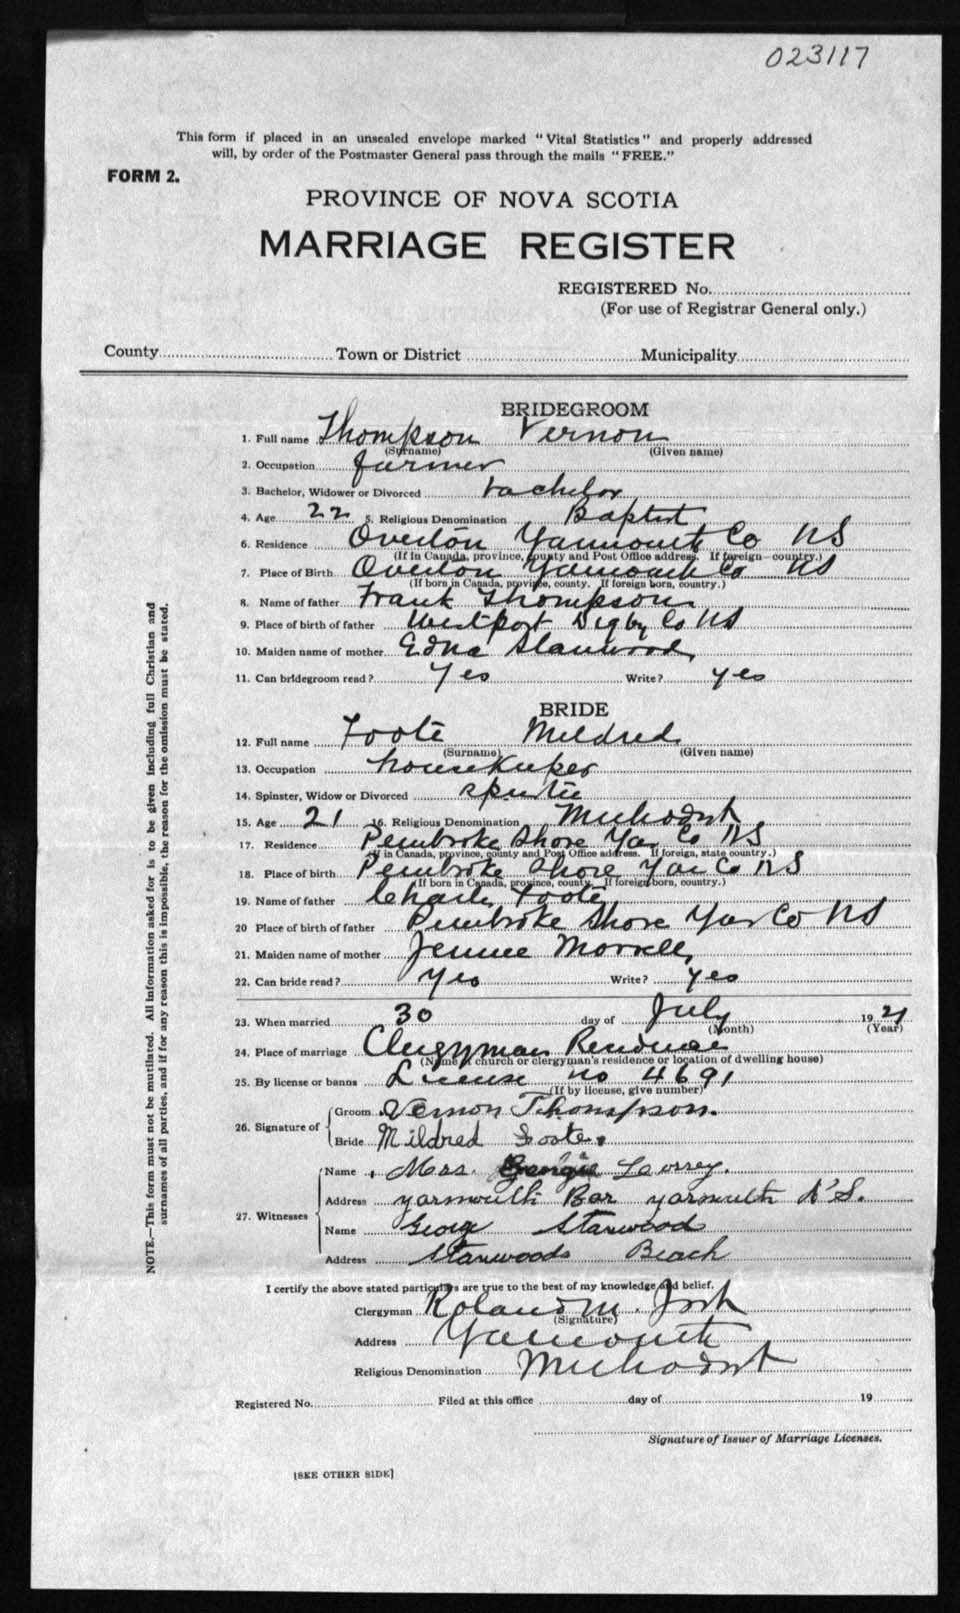 023117
This form if placed in an unsealed envelope marked "Vital Statistics" and properly addressed
will, by order of the Postmaster General pass through the mails "FREE."
FORM 2.
PROVINCE OF NOVA SCOTIA
MARRIAGE REGISTER
REGISTERED No.
(For use of Registrar General only.)
County Town or District Municipality
BRIDEGROOM
1. Full name Thompson Vernon
(Surname) (Given name)
2. Occupation farmer
3. Bachelor, Widower or Divorced bachelor
4. Age 22 5. Religious Denomination Baptist
6. Residence Overton Yarmouth Co NS
(If in Canada, province, county and Post Office address. If foreign country.)
7. Place of Birth Overton Yarmouth Co NS
(If born in Canada, province, county. If foreign born, country.)
8. Name of father Frank Thompson
9. Place of birth of father Westport Digby Co NS
10. Maiden name of mother Edna Stanwood
11. Can bridegroom read? Yes Write? Yes
BRIDE
12. Full name Foote Mildred
(Surname) (Given name)
13. Occupation housekeeper
14. Spinster, Widow or Divorced
15. Age 21 16. Religious Denomination Methodist
17. Residence Pembroke Shore Yar Co NS
(If in Canada, province, county and Post Office address. If foreign, state country.)
18. Place of birth Pembroke Shore Yar Co NS
(If born in Canada, province, county. If foreign born, country.)
19. Name of father Charles Foote
20 Place of birth of father Pembroke Shore Yar Co NS
21. Maiden name of mother Jennie Morrell
22. Can bride read? Yes Write? Yes
23. When married 30 day of July 1921
(Month) (Year)
24. Place of marriage Clergyman Residence
(Name of church or clergyman's residence or location of dwelling house)
25. By license or banns License no 4691
(If by license, give number)
26. Signature of
Groom Vernon Thompson.
Bride Mildred Foote.
27. Witnesses
Name Mrs.
Address Yarmouth Bar Yarmouth N'S.
Name George Stanwood
Address Stanwoods Beach
I certify the above stated particulars are true to the best of my knowledge and belief.
Clergyman Roland M.
(Signature)
Address Yarmouth
Religious Denomination Methodist
Registered No. Filed at this office day of 19
Signature of Issuer of Marriage Licenses.
[SEE OTHER SIDE]
NOTE.—This form must not be mutilated. All information asked for is to be given including full Christian and
surnames of all parties, and if for any reason this is impossible, the reason for the omission must be stated.